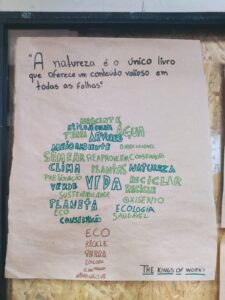 "A natureza é o único livro
que oferece um conteúdo valioso em
todas as folhas"
NASCENTE
TERRA ÁRVORE ÁGUA
MEIO AMBIENTE
SEMEAR REAPROVEITA CONSERVAÇÃO
CLIMA PLANTAS NATUREZA
PRESERVAÇÃO VIDA RECICLAR
VERDE RECICLE
SUSTENTABILIDADE OXIGÊNIO
PLANETA ECOLOGIA
ECO SAUDÁVEL
CONSERVAÇÃO
ECO
RICICLE
TERRA
THE KINGS OF WORK'S